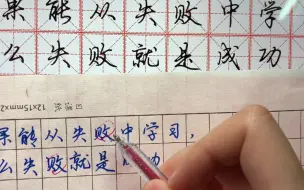 果能从失败中学
么失败就是成功
12x15mmx2
果能从失败中学习，
么失败就是 功